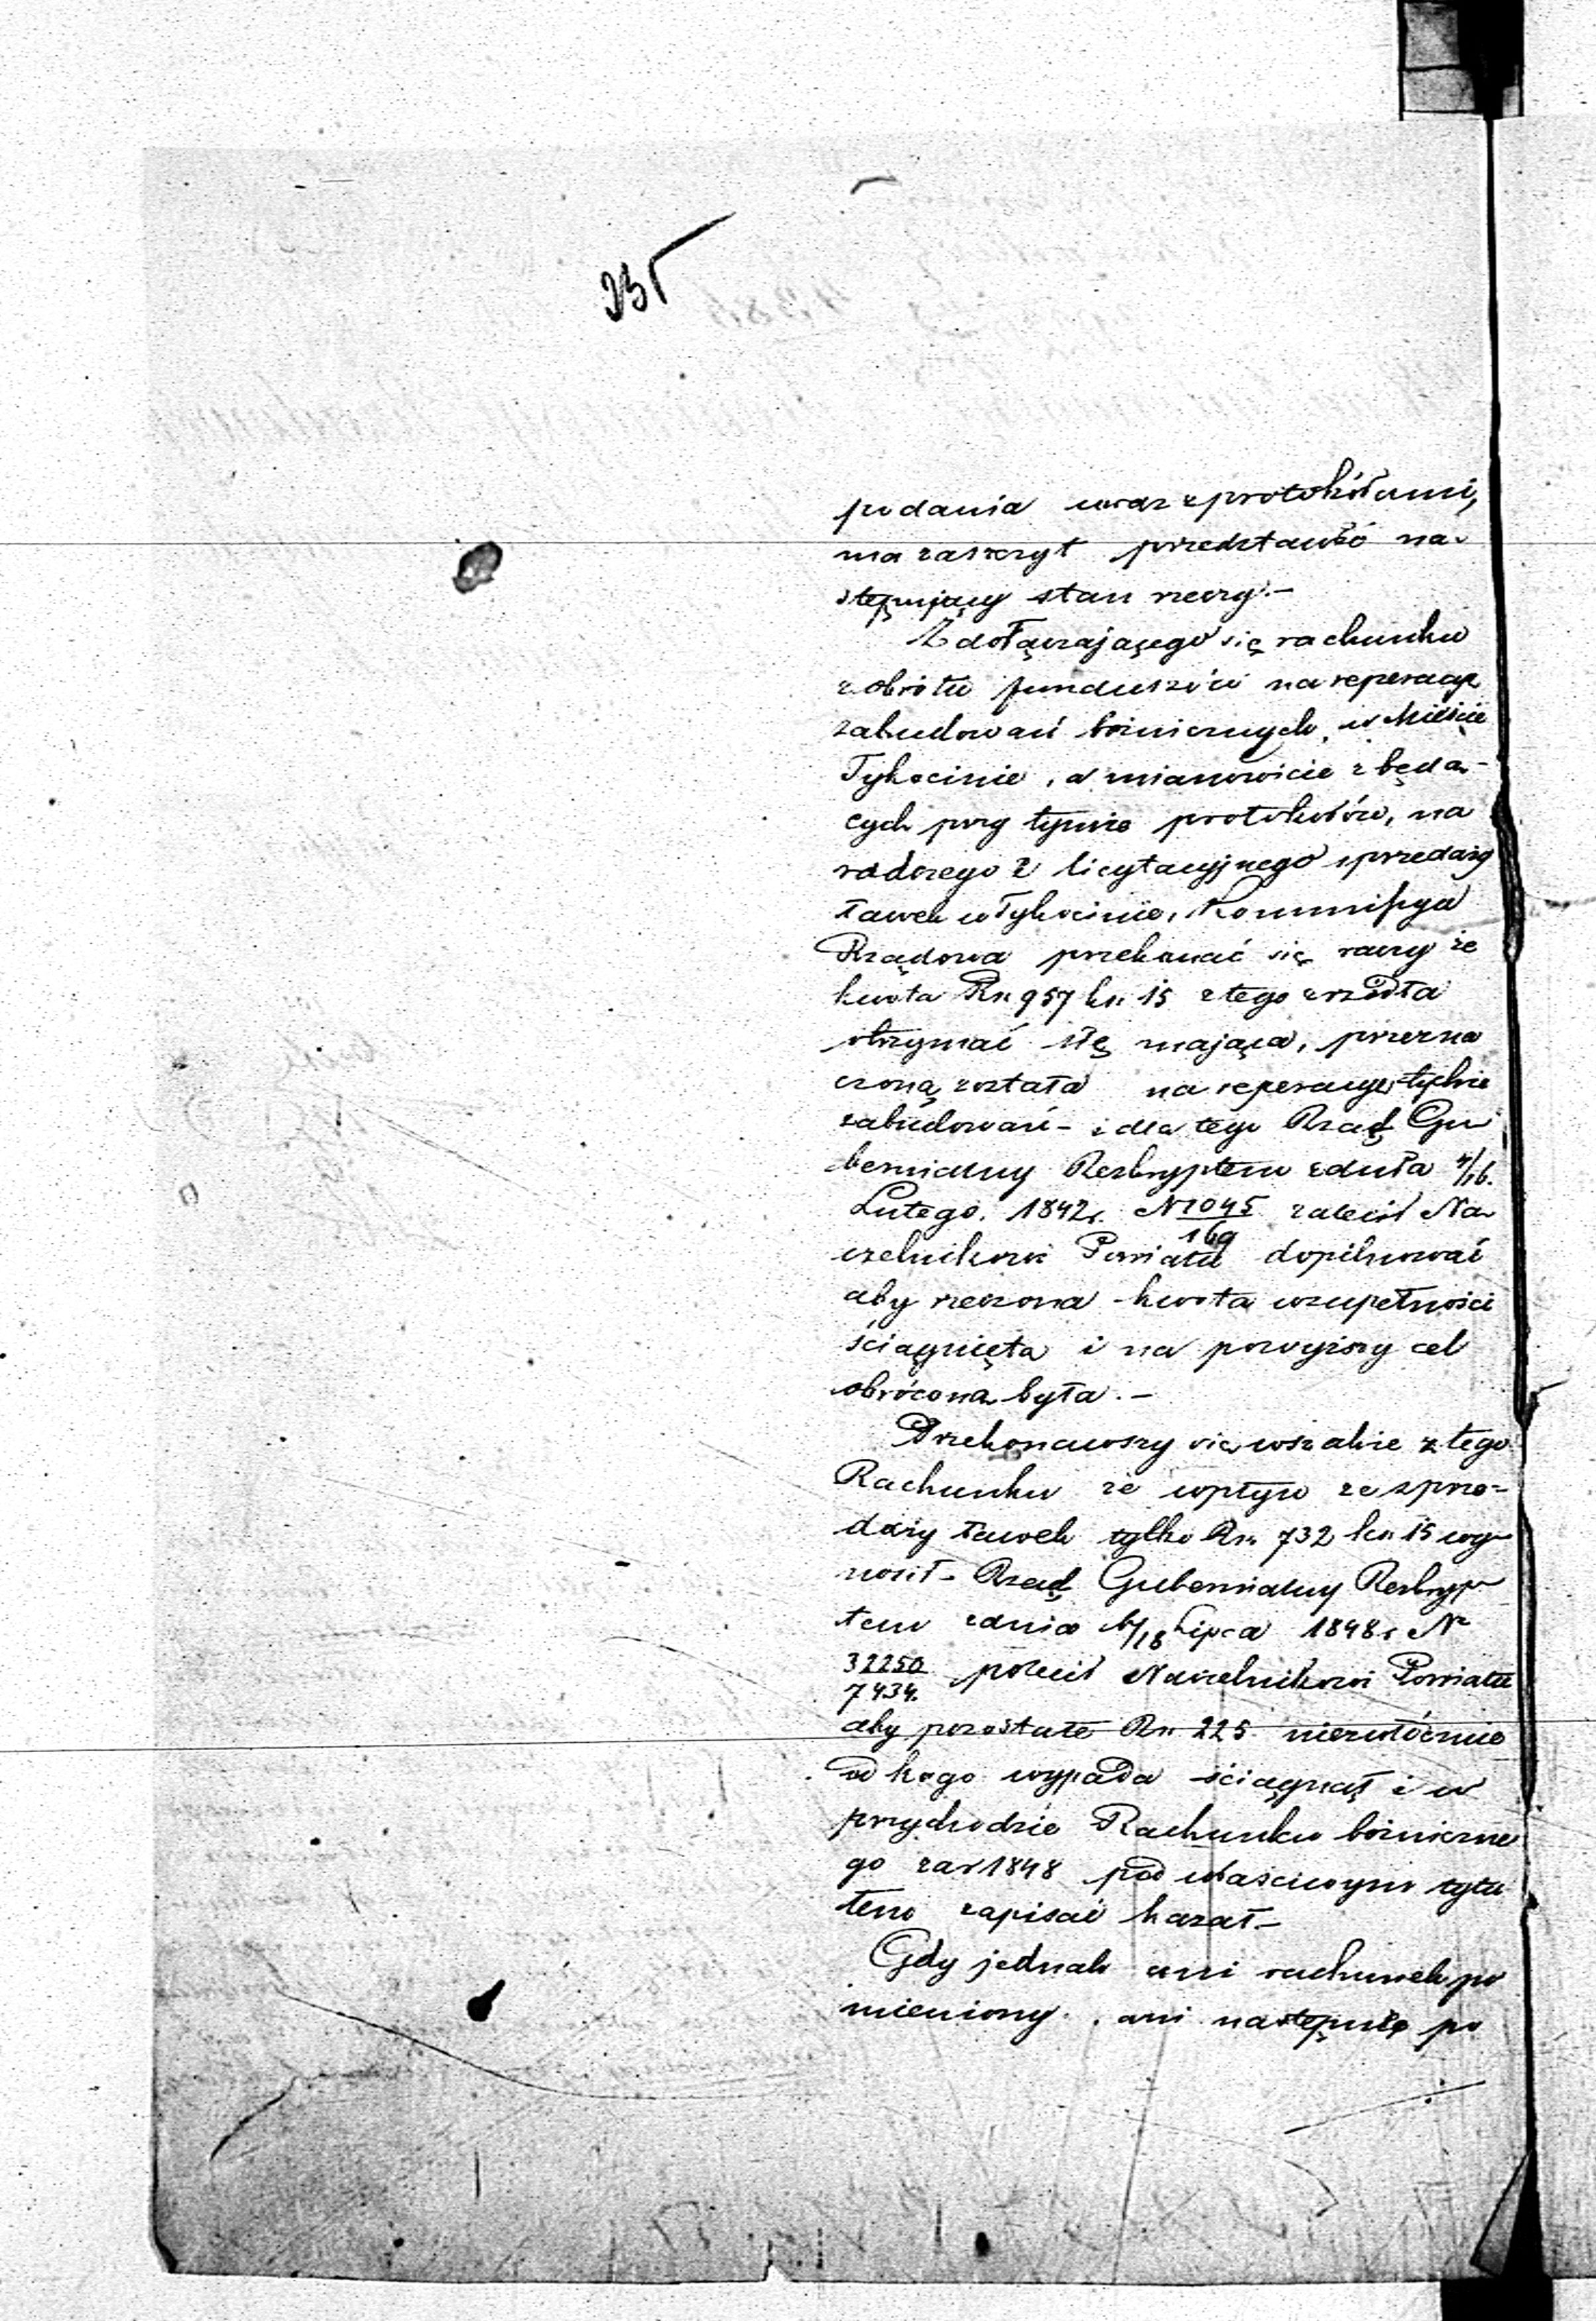 235
podania wraz z protokółami,
ma zaszczyt przedstawić na-
stępujący stan rzeczy.—
Z dołączającego się rachunku
z obrotu funduszów na reperacyę
zabudowań bożnicznych, w Mieście
Tykocinie, a mianowicie z będą-
cych przy tymże protokołów, na
radczego i licytacyjnego sprzedaży
ławek w Tykocinie, Kommissya
Rządowa przekonać się raczy że
kwota Rn 957 kn 15 z tego źrzódła
otrzymać się mająca, przezna
czoną została na reperacyę tychże
zabudowań - i dla tego Rząd Gu
bernialny Reskryptem z dnia 4/16.
Lutego. 1842r. N 1045/169 zalecił Na
czelnikowi Powiatu dopilnować
aby rzeczona kwota w zupełności
ściągnięta i na powyższy cel
obróconą była.—
Przekonawszy się wszakże z tego
Rachunku że wpływ ze sprze=
daży ławek tylko Rn. 732 kn 15 wy-
nosił - Rząd Gubernialny Reskryp-
tem z dnia 6/18 Lipca 1848r N
32250/7434. polecił Naczelnikowi Powiatu
aby pozostałe Rn 225 niezwłócznie
od kogo wypada ściągnął i w
przychodzie Rachunku bożniczne
go za r 1848 pod właściwym tytu
łem zapisać kazał.—
Gdy jednak ani rachunek po
mieniony, ani następnie po